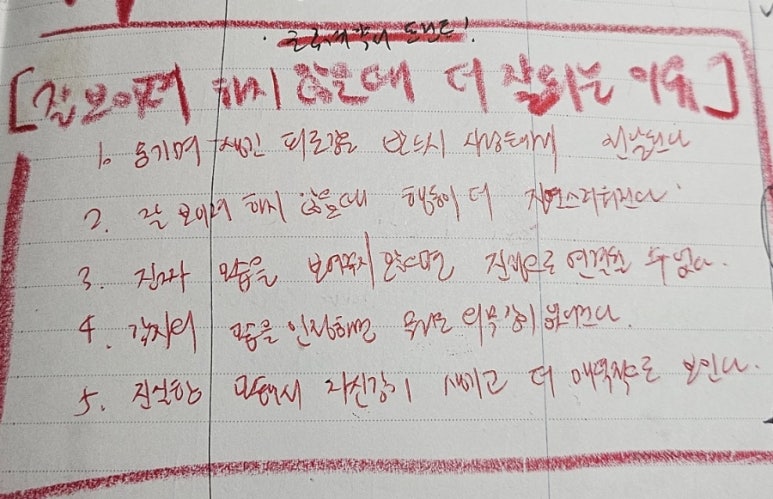 [잘 보이려 하지 않을때 더 잘되는 이유]
1. 생긴 피로감은 반드시 상대에게 전달된다
2. 잘 보이려 하지 않을때 행동이 더 자연스러워진다.
3. 진짜 모습을 보여주지 않으면 진심으로 연결될 수 없다.
4. 각자의 모습을 인정해면 의무감이 없어진다.
5. 진실한 모습에서 자신감이 생기고 더 매력적으로 보인다.